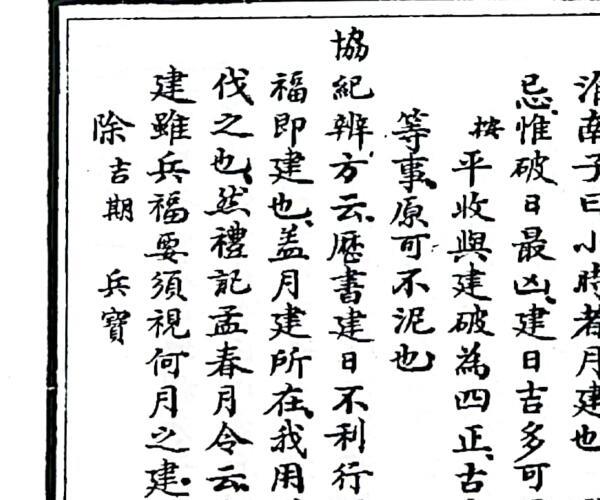 淮南子曰小時者月建也
忌惟破日最凶建日吉多可
按平收與建破為四正古
等事原可不泥也
協紀辨方云歷書建日不利行
福即建也蓋月建所在我用
伐之也然禮記孟春月令云
建雖兵福要須視何月之建
除吉期 兵寶